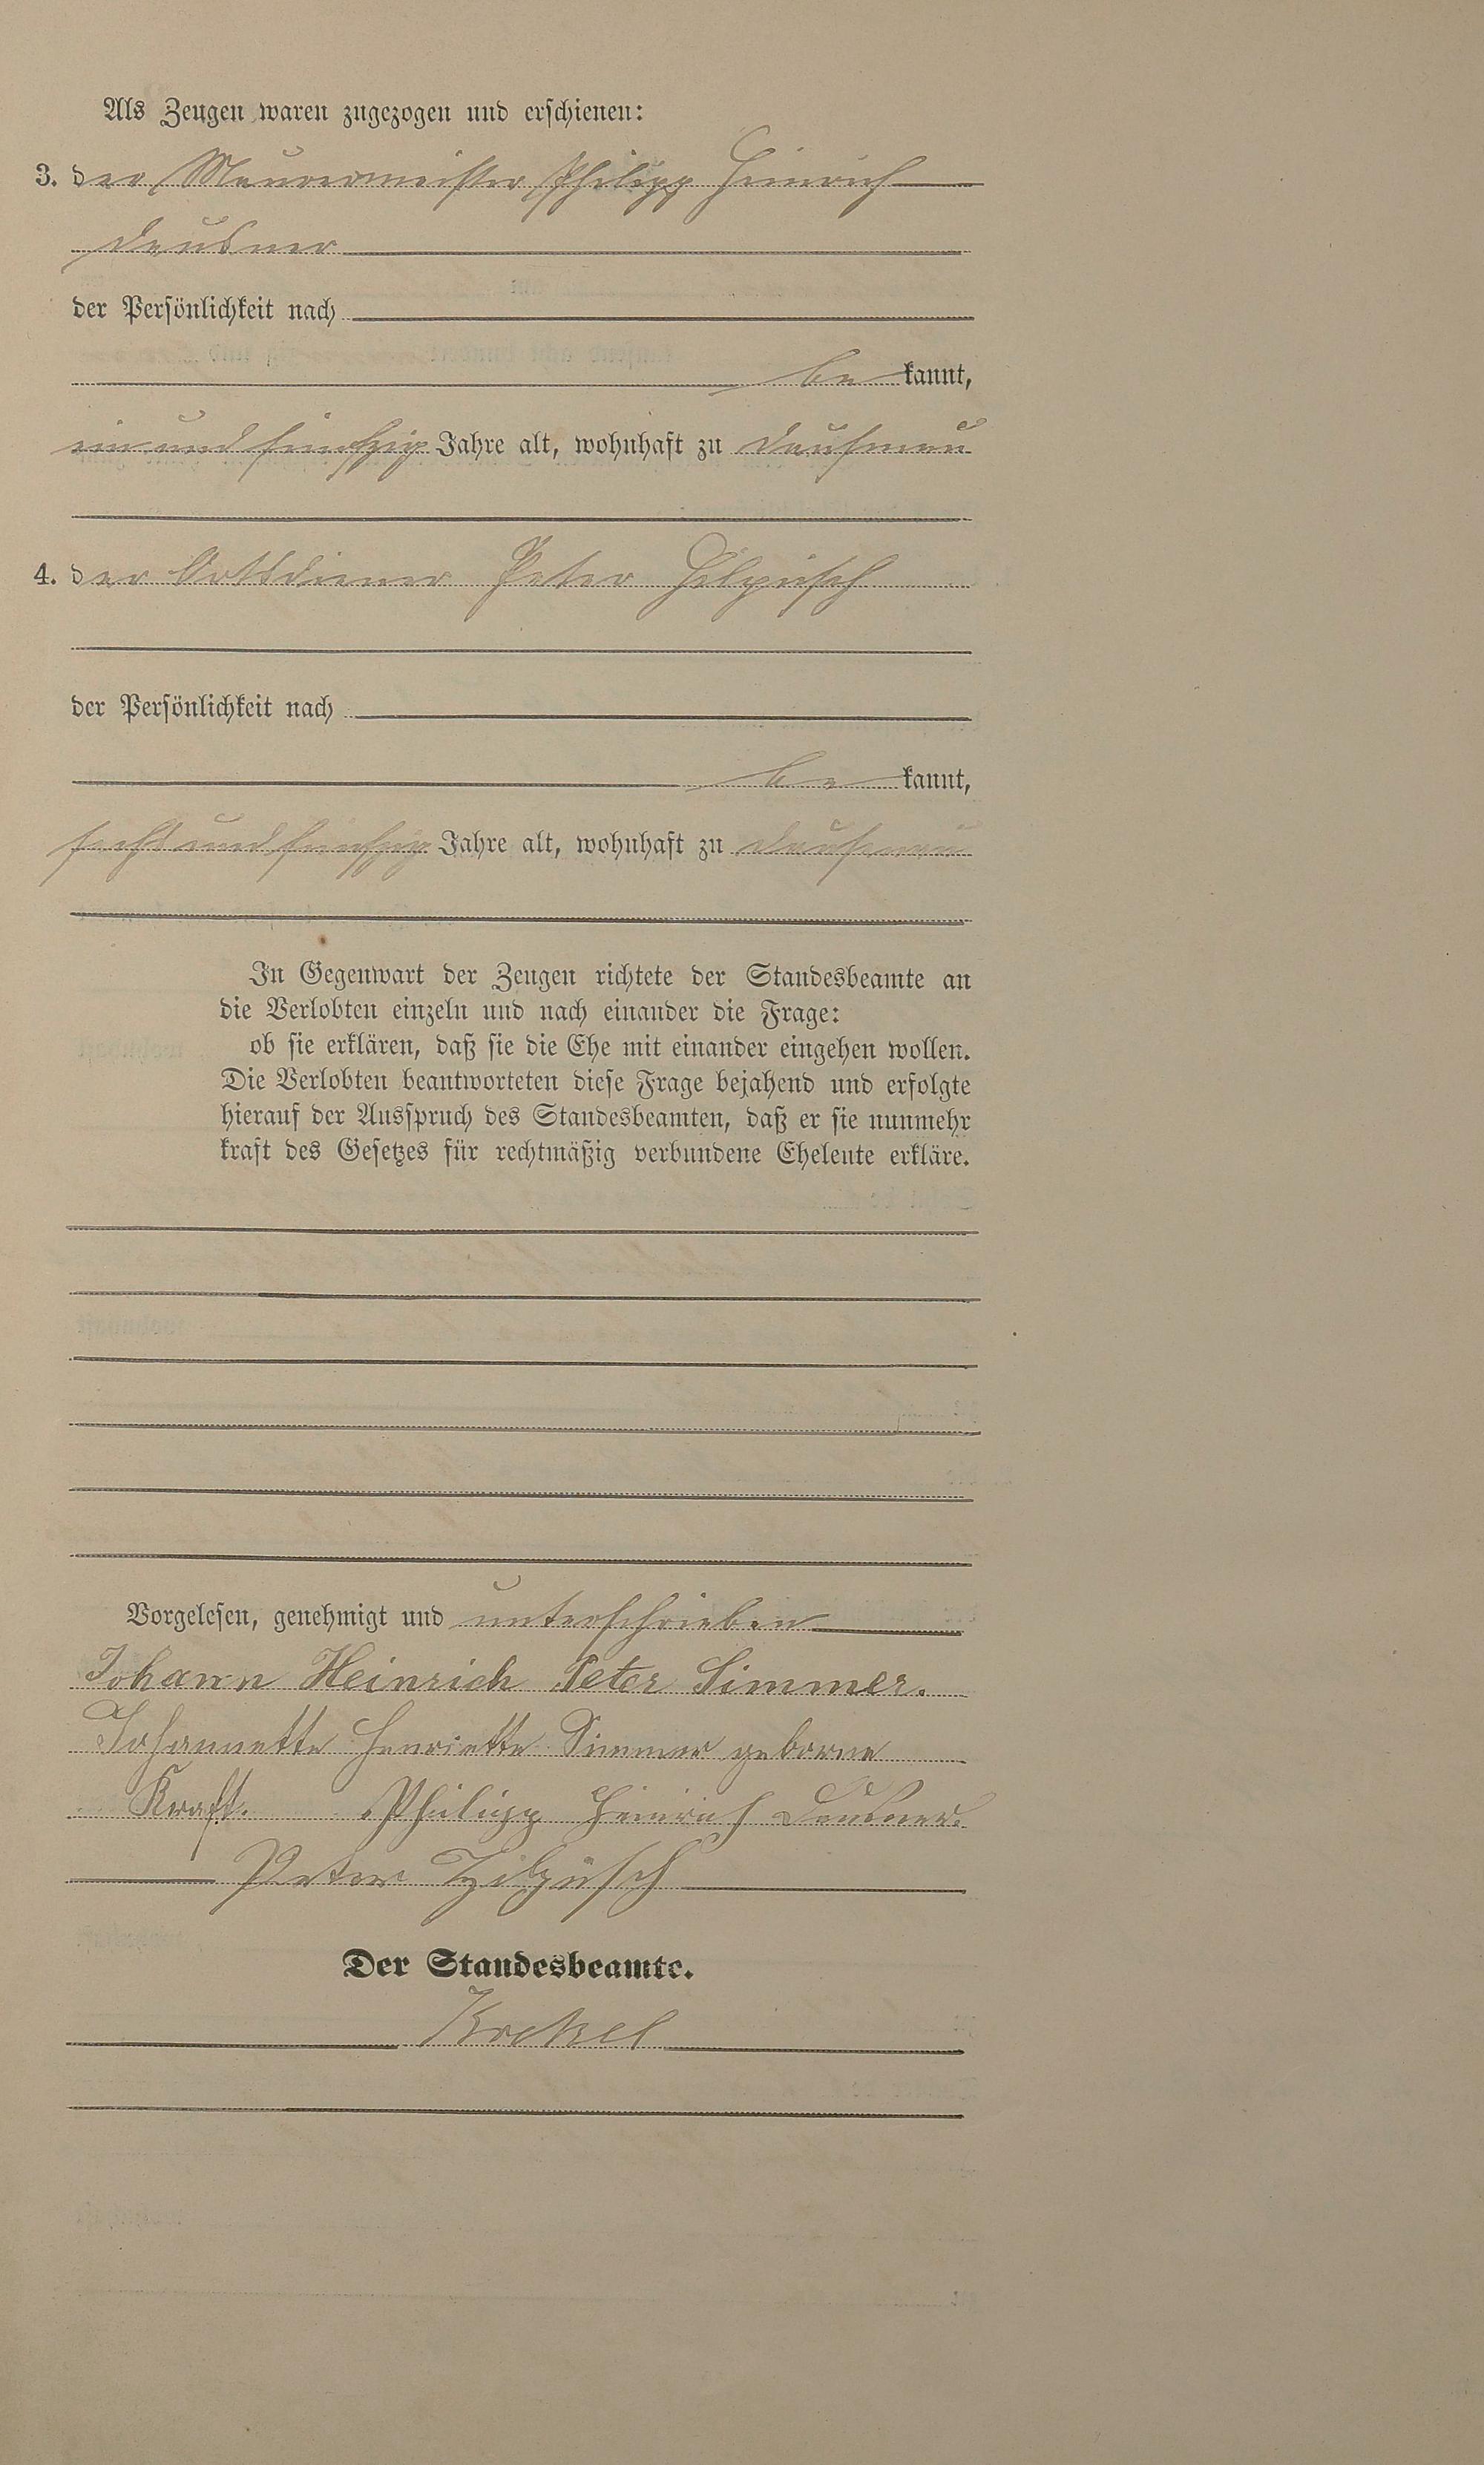 Als Zeugen waren zugezogen und erschienen:
3. der Maurermeister Philipp Heinrich
Deusner
der Persönlichkeit nach
be kannt,
ein und fünfzig Jahre alt, wohnhaft zu Dausenau
4. der Ortsdiener Peter Hilpüsch
der Persönlichkeit nach
be kannt,
sechs und fünfzig Jahre alt, wohnhaft zu Dausenau
In Gegenwart der Zeugen richtete der Standesbeamte an
die Verlobten einzeln und nach einander die Frage:
ob sie erklären, daß sie die Ehe mit einander eingehen wollen.
Die Verlobten beantworteten diese Frage bejahend und erfolgte
hierauf der Ausspruch des Standesbeamten, daß er sie nunmehr
kraft des Gesetzes für rechtmäßig verbundene Eheleute erkläre.
Vorgelesen, genehmigt und unterschrieben
Johann Heinrich Peter Simmer.
Johannette Henriette Simmer geborne
Kraft. Philipp Heinrich Deusner.
Peter Hilpüsch
Der Standesbeamte.